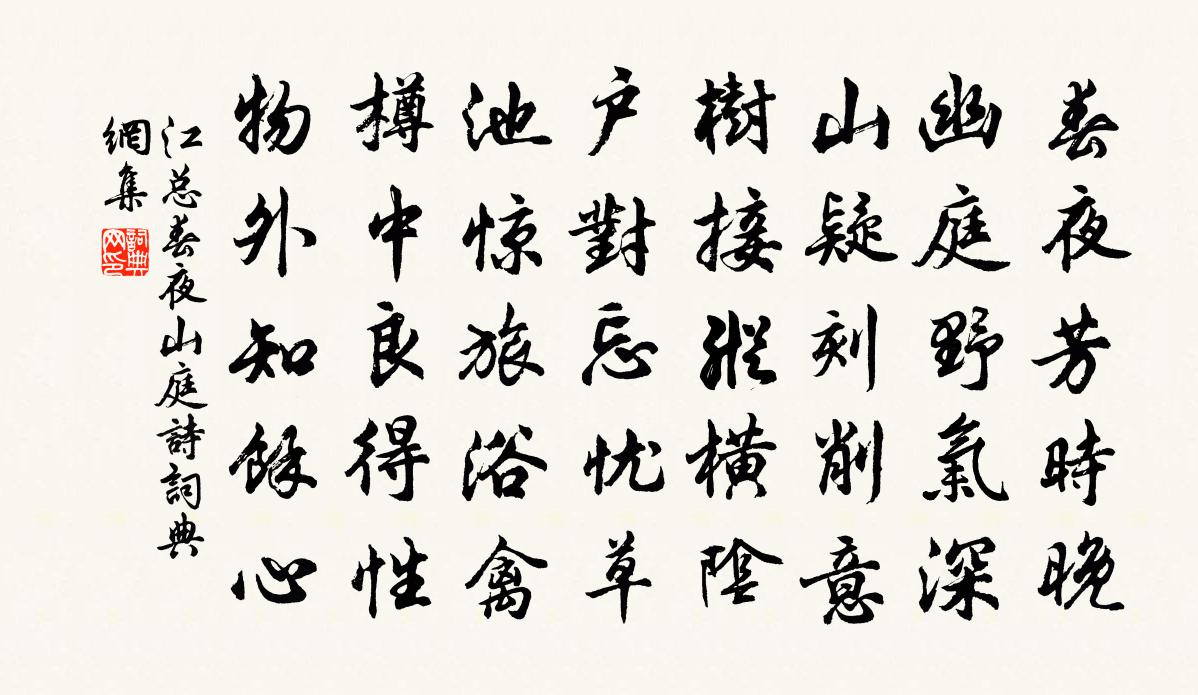 春夜芳時晚
幽庭野氣深
山疑刻削意
樹接縱橫陰
户對忘忧草
池惊旅浴禽
樽中良得性
物外知餘心
江总春夜山庭詩詞典
網集
詞典
网印